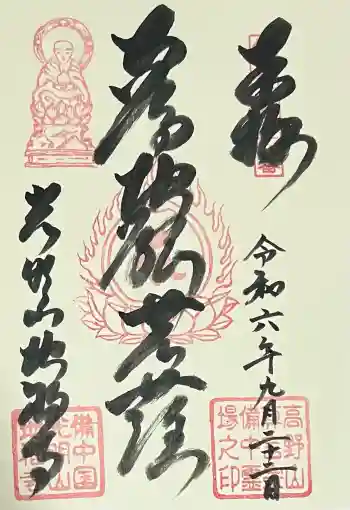 奉拝
令和六年九月二十二日
南無地蔵菩薩
光明山地福寺
高野山
備中霊
場之印
備中国
光明山
地福寺